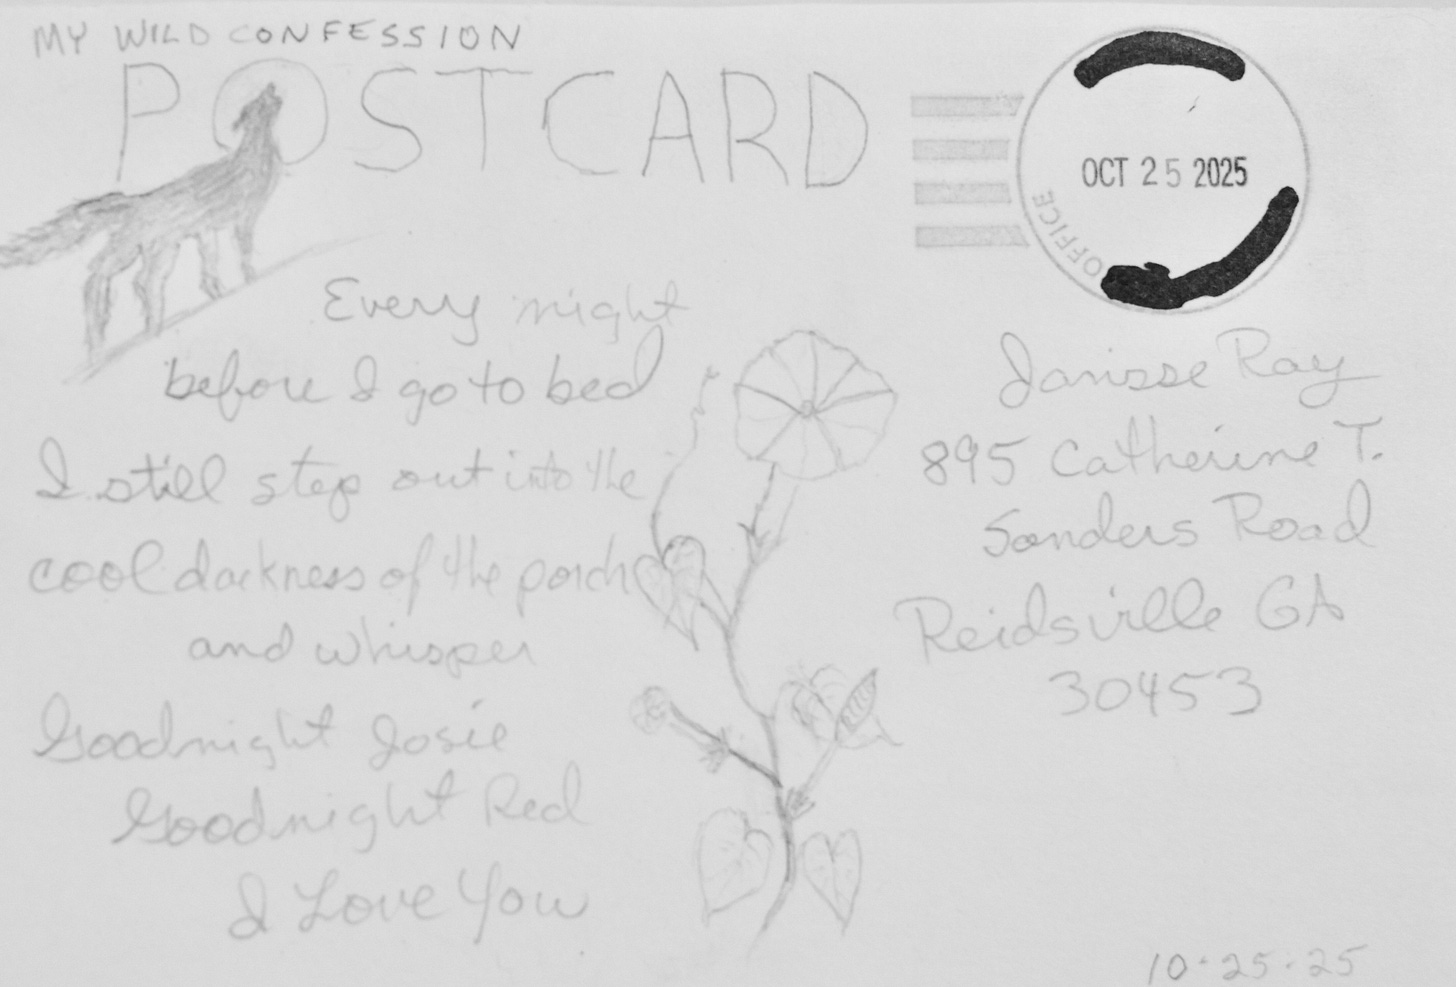 MY WILD CONFESSION
POSTCARD
OCT 25 2025
OFFICE
Every night
before I go to bed
I still step out into the
cool darkness of the porch
and whisper
Goodnight Josie
Goodnight Red
I Love You
Janisse Ray
895 Catherine T.
Sanders Road
Reidsville GA
30453
10·25·25